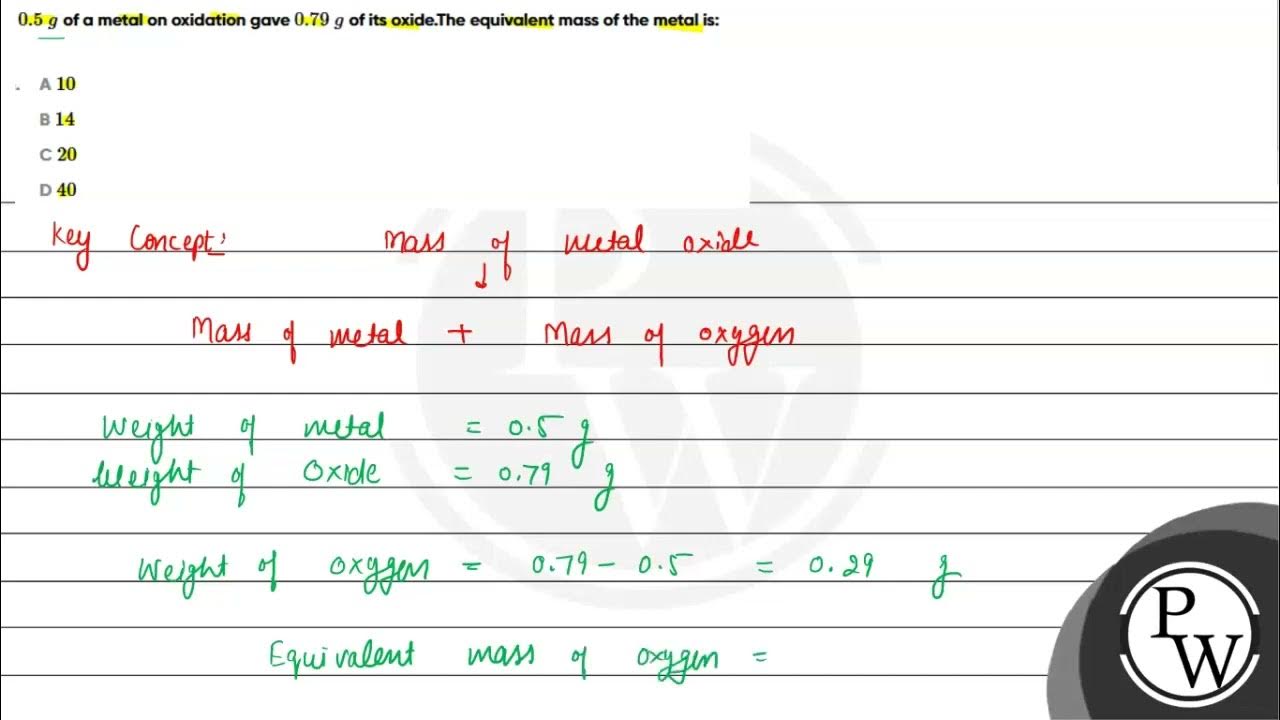 0.5 g of a metal on oxidation gave 0.79 g of its oxide.The equivalent mass of the metal is:
A 10
B 14
C 20
D 40
Key Concept:
Mass of metal oxide
↓
Mass of metal + Mass of oxygen
Weight of metal = 0.5 g
Weight of Oxide = 0.79 g
Weight of oxygen = 0.79 - 0.5 = 0.29 g
Equivalent mass of oxygen =
PW
PW